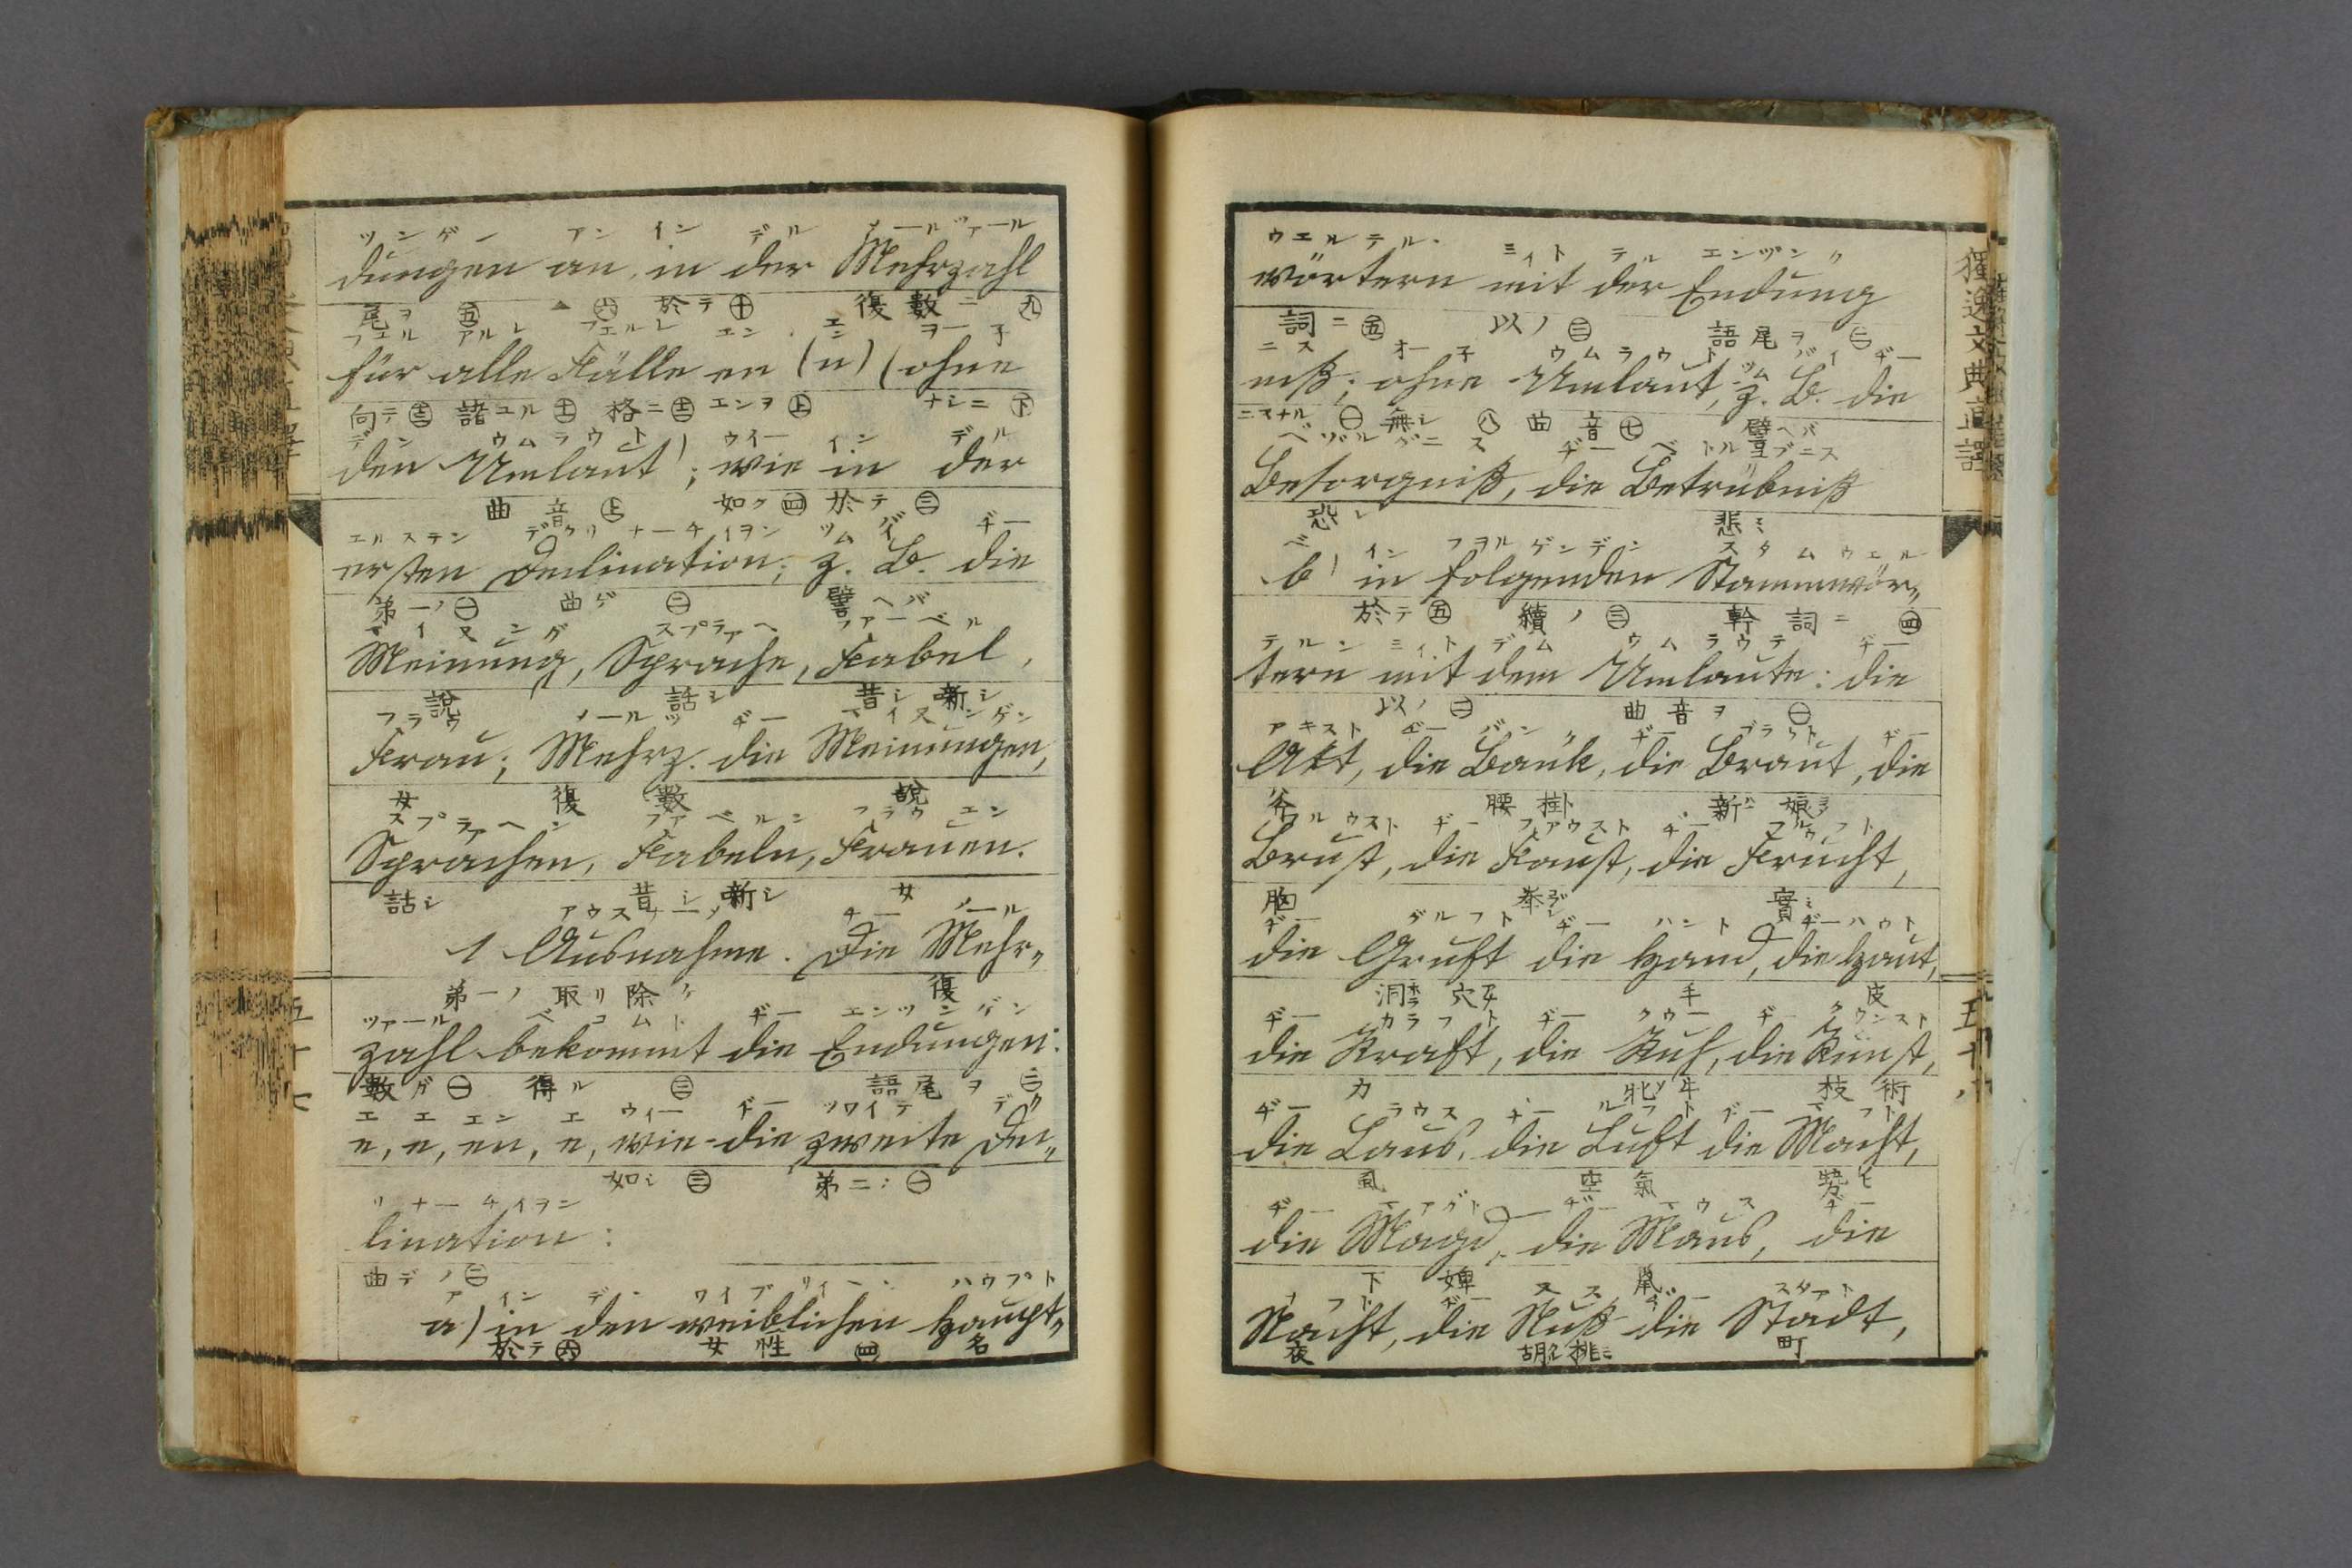 ツンゲン アン イン デル メールツァール
dungen an, in der Mehrzahl
尾ヲ ㊄ ㊅ 於テ ㊉ 復數ニ ㊈
フェル アルレ フェルレ エン エン ヲー子
für alle Fälle en (n) (ohne
向テ 諸ユル 格ニ エンヲ ㊤ ナシニ ㊦
デン ウムラウト ウイー イン デル
den Umlaut); wie in der
曲音 ㊤ 如ク ㊃ 於テ ㊂
エルステン デクリナーチイヲン ツム バイ ヂー
ersten Declination; z. B. die
弟一ノ ㊀ 曲ゲ ㊁ 譬ヘバ
マイヌング スプラアヘ ファーベル
Meinung, Sprache, Fabel,
說 話シ 昔シ噺シ
フラウ メールツ ヂー マイヌンゲン
Frau; Mehrz. die Meinungen,
女 復數 說
スプラアヘン ファベルン フラウエン
Sprachen, Fabeln, Frauen.
話シ 昔シ噺シ 女
アウスナーメ ヂー メール
1 Ausnahme. Die Mehr„
弟一ノ 取リ除ケ 復
ツァール ベコムト ヂー エンヅンゲン
zahl bekommt die Endungen:
數ガ ㊀ 得ル ㊂ 語尾ヲ ㊁
エ エ エン エ ウィー ヂー ツワイテ デク
e, e, en, e, wie die zweite Dec„
如シ ㊂ 弟二ノ ㊀
リナーチイヲン
lination:
曲デノ ㊁
ア イン デン ワイブリィヘン ハウプト
a) in den weiblichen Haupt„
於テ ㊅ 女性 ㊃ 名
ウエルテルン ミィト デル エンヅング
wörtern mit der Endung
詞ニ ㊄ 以ノ ㊂ 語尾ヲ ㊁
ニス オー子 ウムラウト ツム バイ ヂー
niß; ohne Umlaut, z. B. die
ニスナル ㊀ 無シ ㊇ 曲音 ㊆ 譬ヘバ
ベゾルグニス ヂー ベトルユブニス
Besorgniß, die Betrübniß
恐レ 悲ミ
ベ イン フヲルゲンデン スタムウェル
b) in folgenden Stammwör„
於テ ㊄ 續ノ ㊂ 幹詞ニ ㊃
テルン ミィト デム ウムラウテ ヂー
tern mit dem Umlaute: die
以ノ ㊁ 曲音ヲ ㊀
アキスト ヂー バンク ヂー ブラウト ヂー
Axt, die Bank, die Braut, die
斧 腰掛 新娘
ブルウスト ヂー ファウスト ヂー フルウフト
Brust, die Faust, die Frucht,
胸 拳 實
ヂー グルフト ヂー ハント ヂー ハウト
die Gruft die Hand, die Haut,
洞穴 手 皮
ヂー カラフト ヂー クウー ヂー クウンスト
die Kraft, die Kuh, die Kunst,
力 牝牛 技術
ヂー ラウス ヂー ルフト ヂー マフト
die Laus, die Luft die Macht,
虱 空氣 勢ヒ
ヂー マアグト ヂー マウス ヂー
die Magd, die Maus, die
下婢 鼠
ナフト ヂー ヌス ヂー スタアト
Nacht, die Nuß die Stadt,
夜 胡桃 町
獨逸文典直譯
五十八
五十七